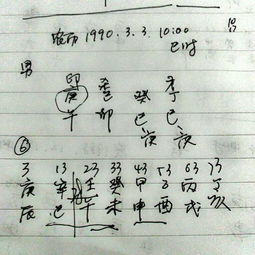 农历 1990.3.3. 10:00
巳时
男
庚 己 癸 丁
午 卯 巳 巳
⑥
3 13 23 33 43 53 63 73
庚 辛 壬 癸 甲 乙 丙 丁
辰 巳 午 未 申 酉 戌 亥